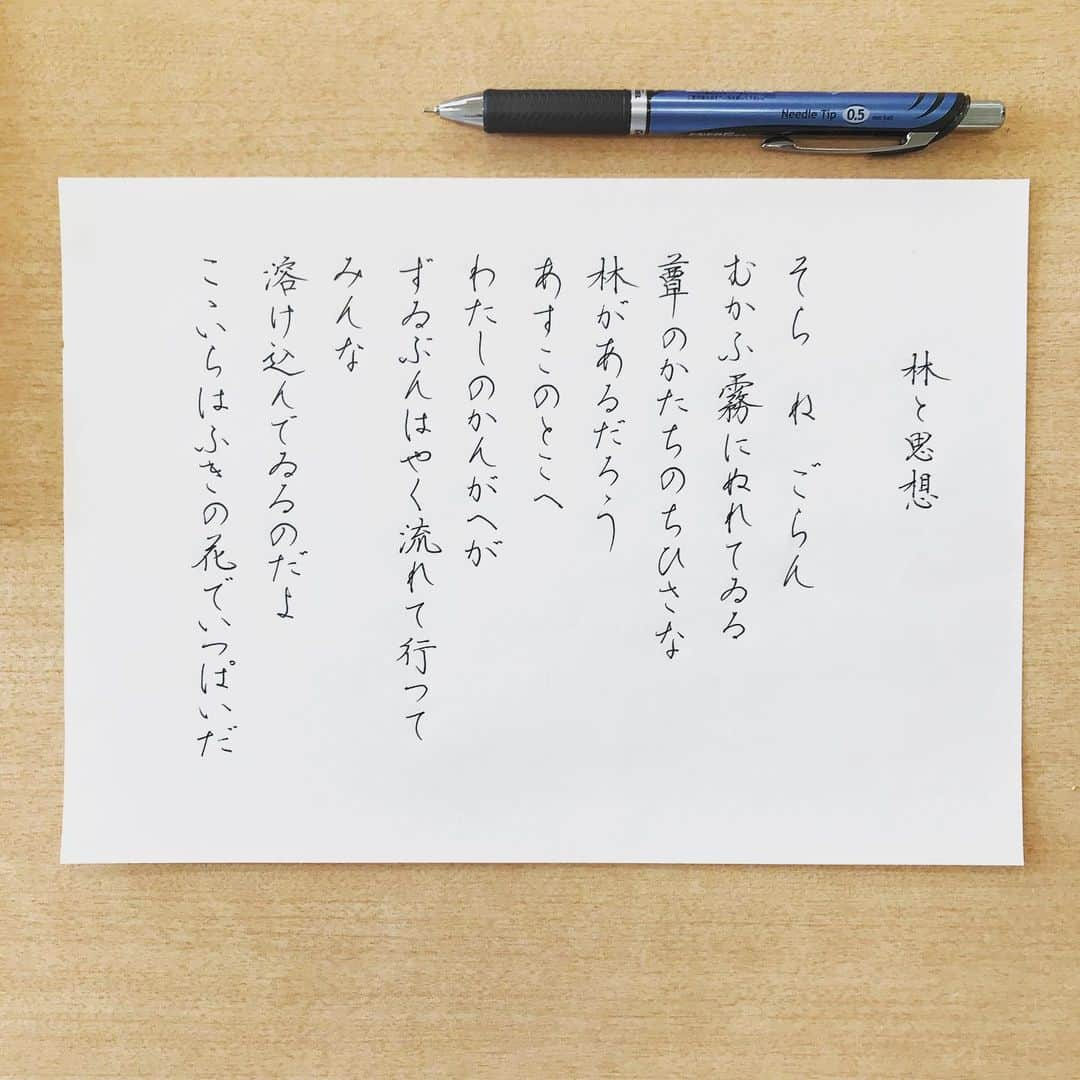 林と思想
そら　ね　ごらん
むかふ霧にぬれてゐる
蕈のかたちのちひさな
林があるだらう
あすこのとこへ
わたしのかんがへが
ずゐぶんはやく流れて行つて
みんな
溶け込んでゐるのだよ
こゝいらはふきの花でいつぱいだ
Needle Tip 0.5